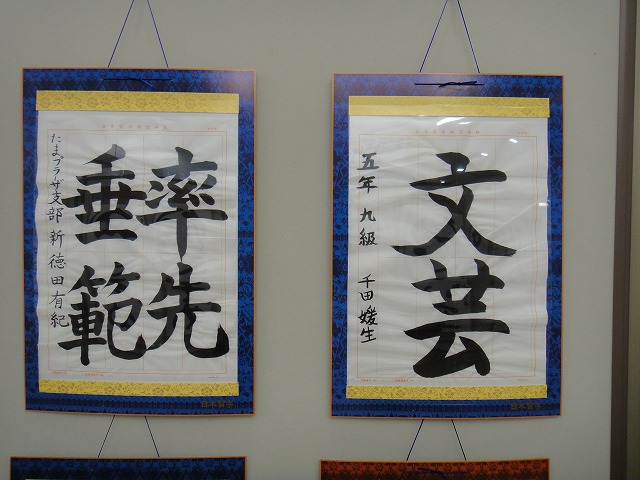 率先
垂範
たまプラーザ支部 新 徳田有紀
文芸
五年 九級 千田媛生